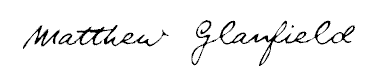 Matthew Glanfield